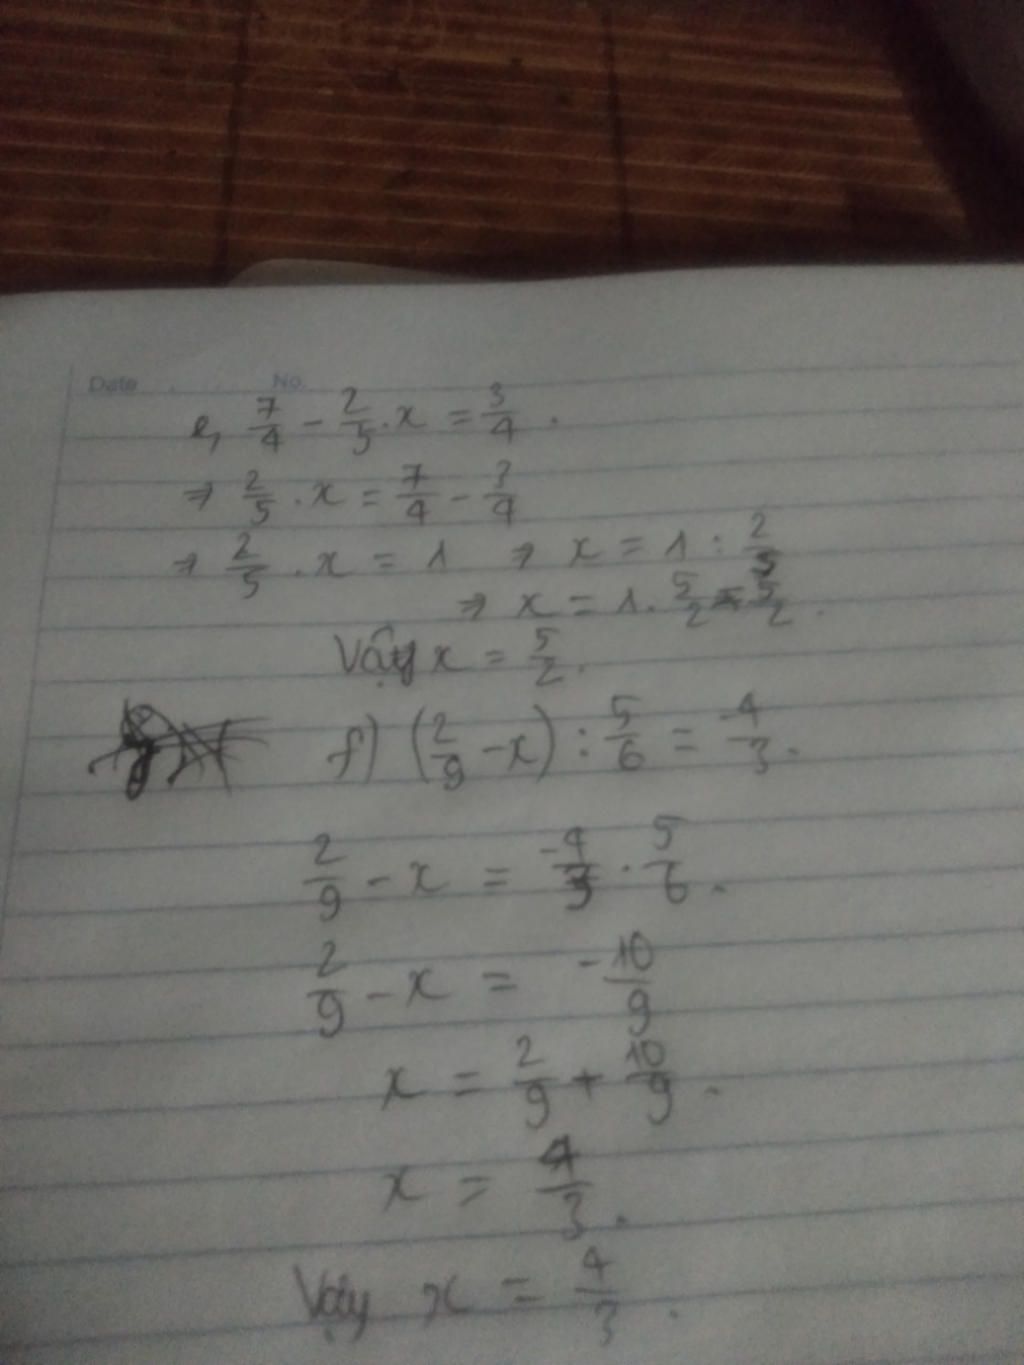 Date No.
e, 7/4 - 2/5 . x = 3/4 .
⇒ 2/5 . x = 7/4 - 3/4
⇒ 2/5 . x = 1 ⇒ x = 1 : 2/5
⇒ x = 1 . 5/2 = 5/2 .
Vậy x = 5/2 .
f) (2/9 - x) : 5/6 = -4/3 .
2/9 - x = -4/3 . 5/6 .
2/9 - x = -10/9
x = 2/9 + 10/9 .
x = 4/3 .
Vậy x = 4/3 .